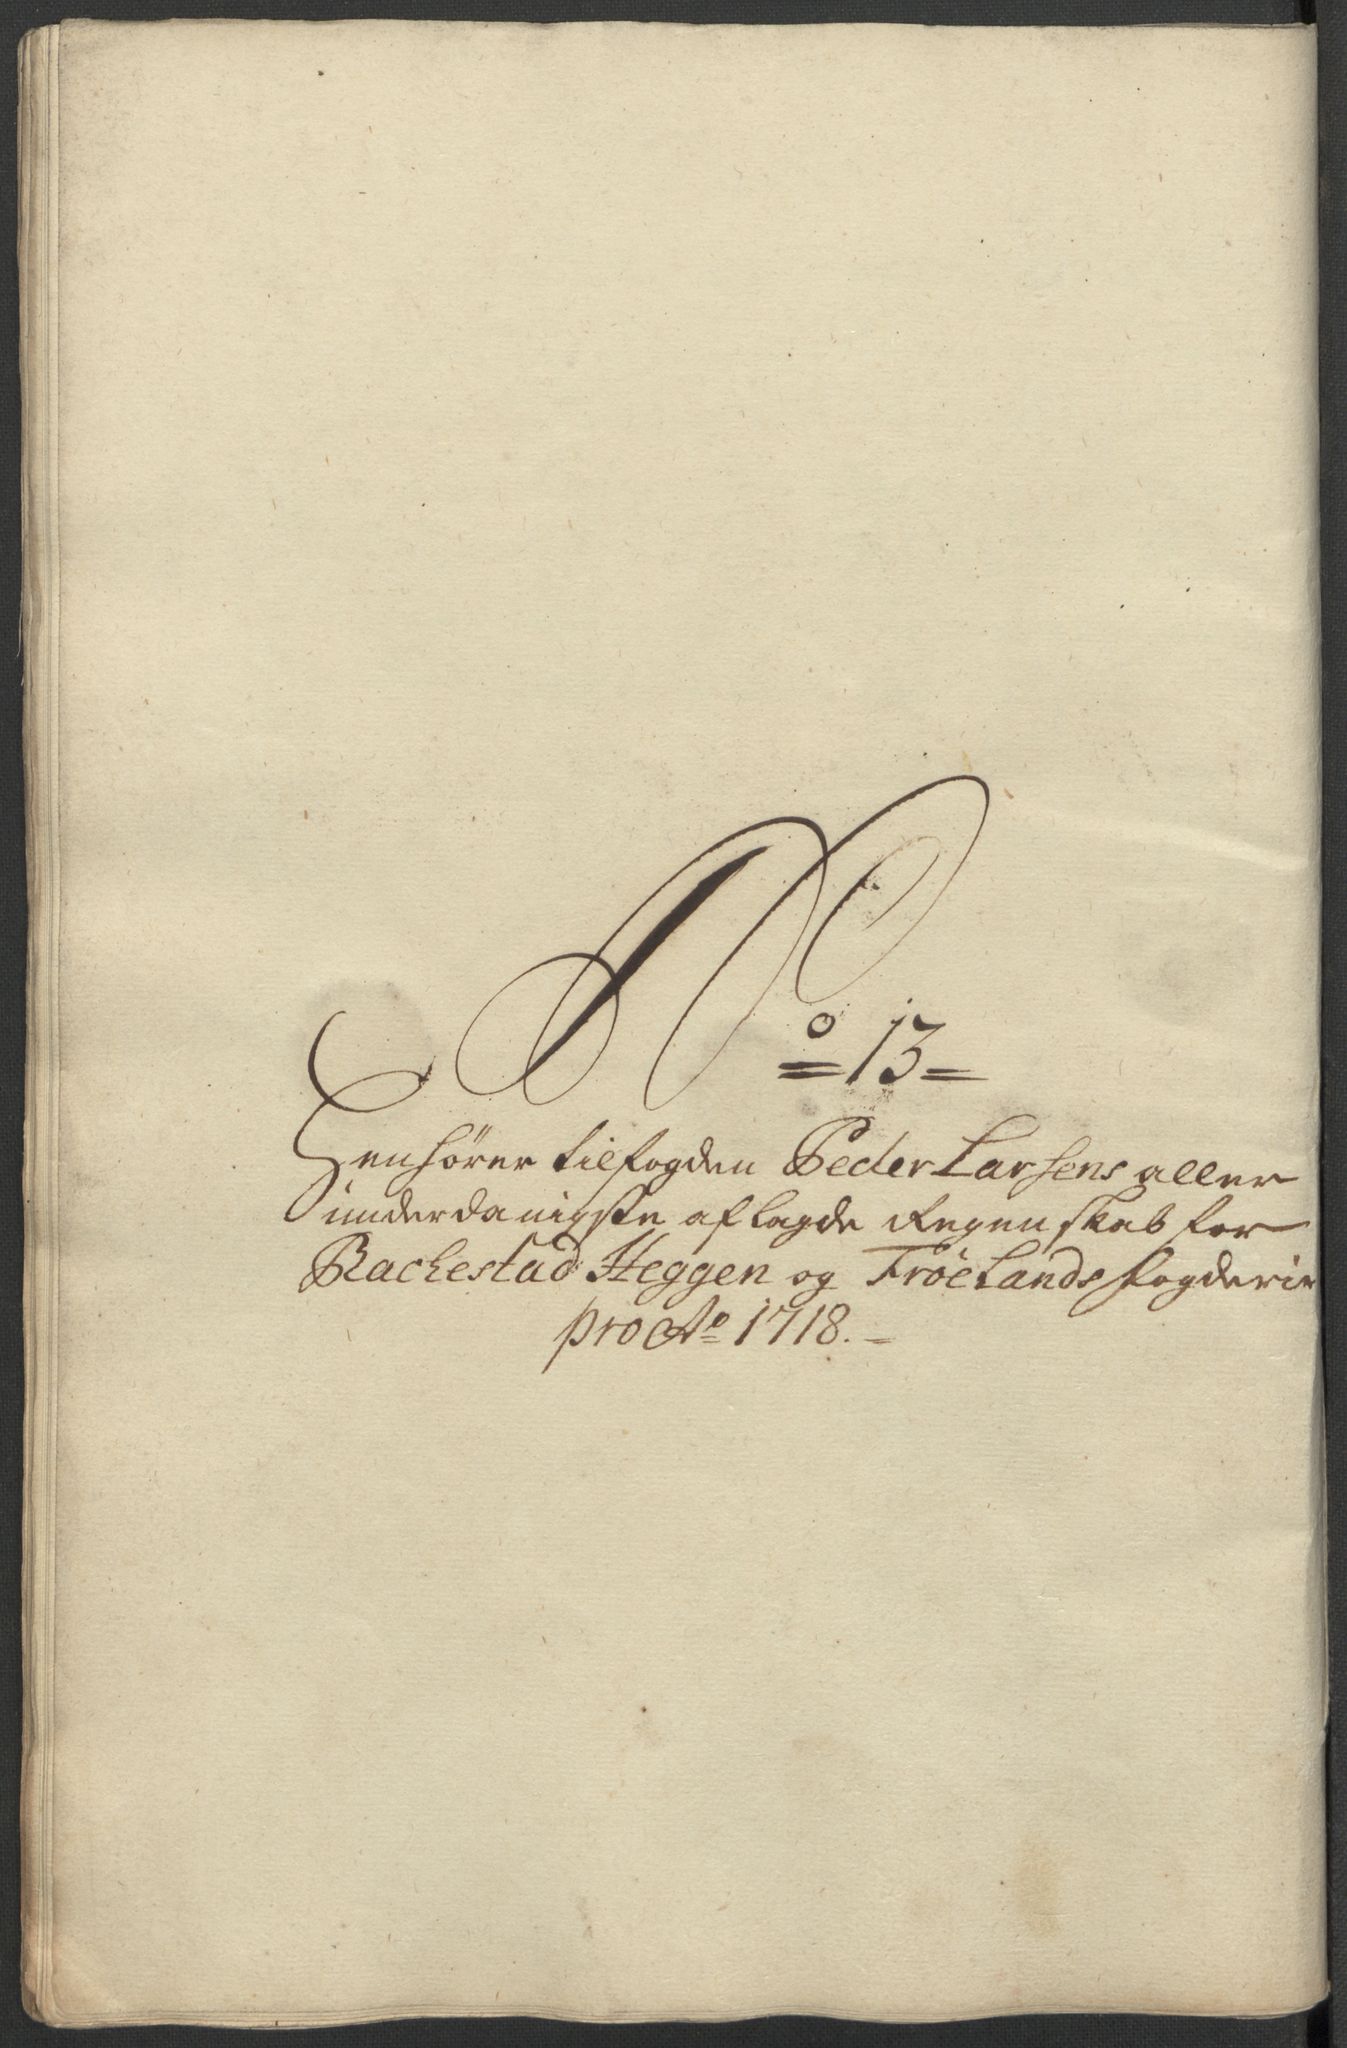 No 13
Henhører til fogden Peder Larsens aller
underdanigste aflagde Regenskab for
Rackestad Heggen og Frøelands fogderie
pro Ao 1718.